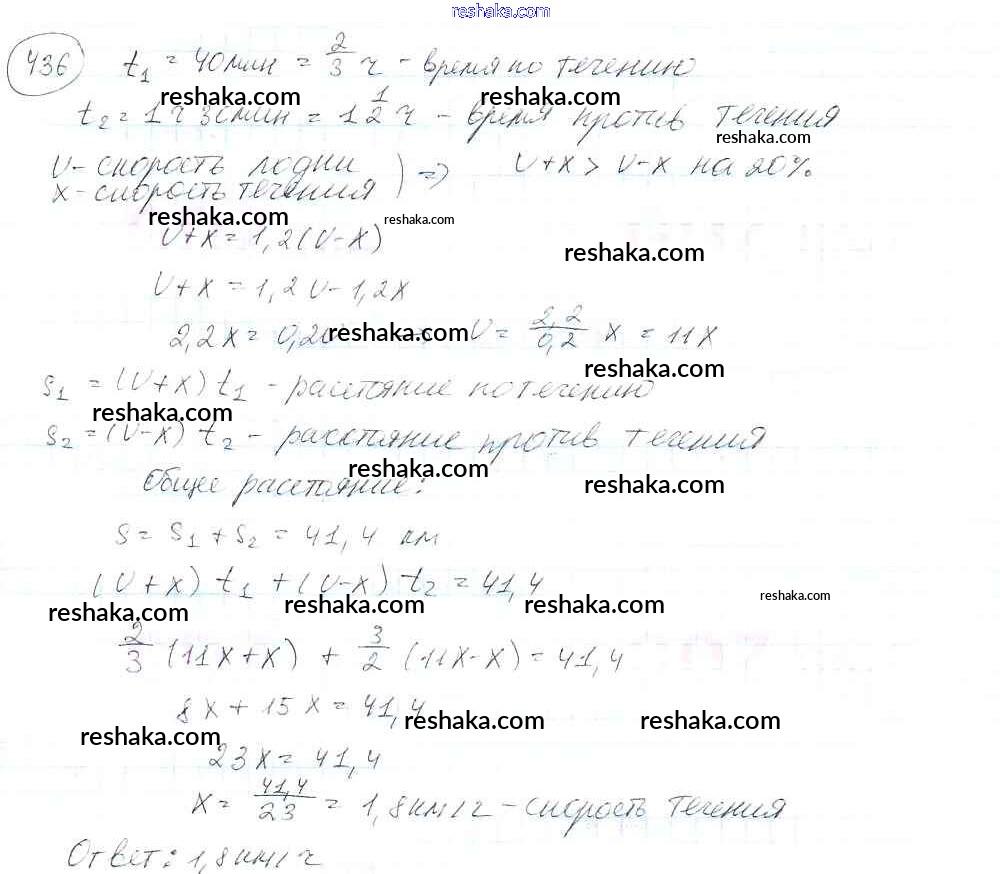 reshaka.com
436 t₁ = 40 мин = 2/3 ч - время по течению
reshaka.com reshaka.com
t₂ = 1 ч 30 мин = 1 1/2 ч - время против течения
reshaka.com
V - скорость лодки
x - скорость течения ) ⇒ V+x > V-x на 20%
reshaka.com reshaka.com
V+x = 1,2(V-x)
reshaka.com
V+x = 1,2V-1,2x
2,2x = 0,2V ⇒ V = 2,2/0,2 x = 11x
reshaka.com
reshaka.com
S₁ = (V+x) t₁ - расстояние по течению
reshaka.com
S₂ = (V-x) t₂ - расстояние против течения
reshaka.com
reshaka.com
Общее расстояние:
S = S₁ + S₂ = 41,4 км
(V+x) t₁ + (V-x) t₂ = 41,4
reshaka.com reshaka.com reshaka.com reshaka.com
2/3 (11x+x) + 3/2 (11x-x) = 41,4
8x + 15x = 41,4
reshaka.com reshaka.com reshaka.com
23x = 41,4
x = 41,4/23 = 1,8 км/ч - скорость течения
Ответ: 1,8 км/ч